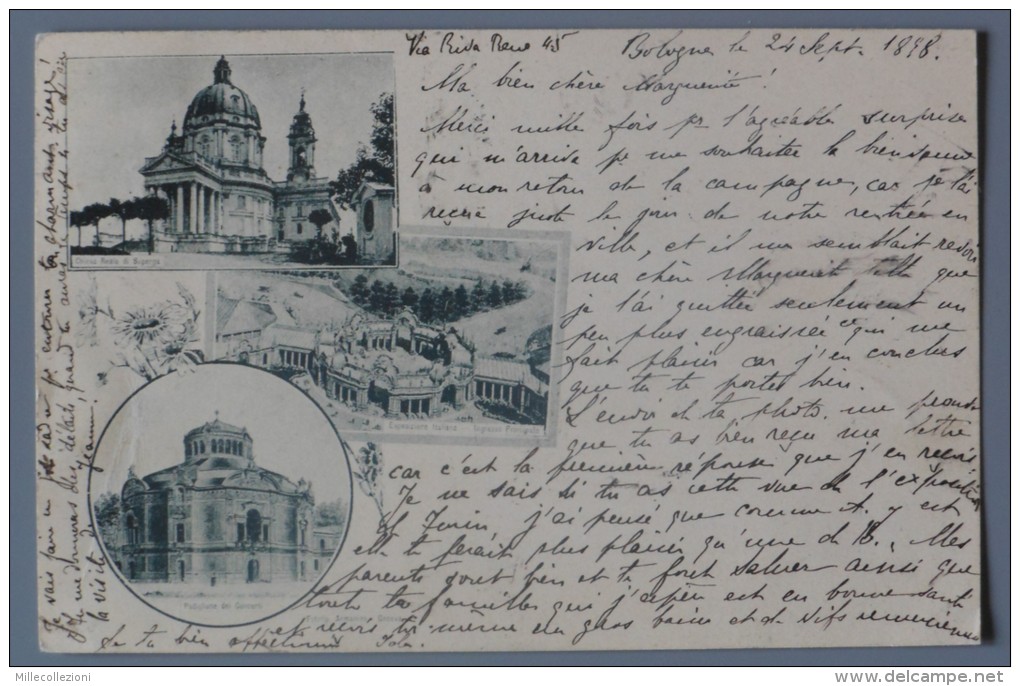 Via Riva Reno 45 Bologna le 24 Sept. 1898.
Ma bien chère Marguerite!
Merci mille fois pr l'agréable surprise
qui m'arriva pr me souhaiter la bienvenue
à mon retour de la campagne, car je l'ai
reçue juste le jour de notre rentrée en
ville, et il me semblait revoir
ma chère Marguerite telle que
je l'ai quittée seulement un
peu plus engraissée ce qui me
fait plaisir car j'en conclus
que tu te portes bien.
L'envoi de ta photo. me prouve
que tu as bien reçu ma lettre
car c'est la première réponse que j'en reçois
Je ne sais si tu as cette vue de l'exposition
de Turin, j'ai pensé que comme A. y est
elle te ferait plus plaisir qu'une de B. Mes
parents vont bien et te font saluer ainsi que
toute ta famille qui j'espère est en bonne santé
et reçois toi-même un gros baiser et de vifs remerciements
de ta bien affectionnée Ida.
Je vais faire un cadre pr entourer ton charmant visage!
Tu me donneras des détails, quand tu auras le temps sur
la visite de Jeanne.
Chiesa Reale di Superga
Esposizione Italiana Ingresso Principale
Padiglione del
Millecollezioni
www.delcampe.net